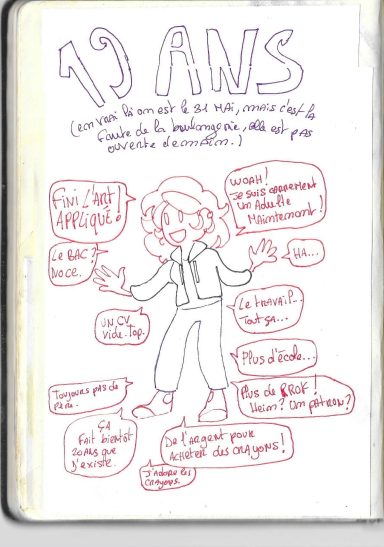 19 ANS
(en vrai là on est le 31 MAI, mais c'est la
faute de la boulangerie, elle est pas
ouverte demain.)
FINI L'ART
APPLIQUÉ!
WOAH!
JE SUIS CARRÉMENT
UN ADULTE
MAINTENANT!
LE BAC?
NOCE.
HA...
UN CV
VIDE. TOP.
LE TRAVAIL...
TOUT ÇA...
PLUS D'ÉCOLE...
TOUJOURS PAS DE
PLUS DE PROF!
HEIN? UN PATRON?
ÇA
FAIT BIENTÔT
20 ANS QUE
J'EXISTE.
DE L'ARGENT POUR
ACHETER DES CRAYONS!
J'ADORE LES
CRAYONS.